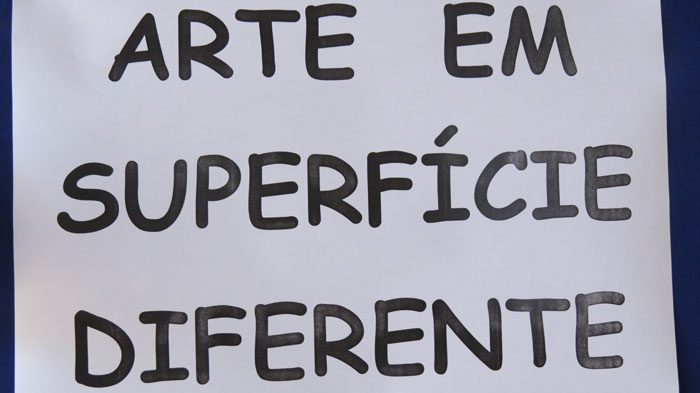 ARTE EM
SUPERFÍCIE
DIFERENTE